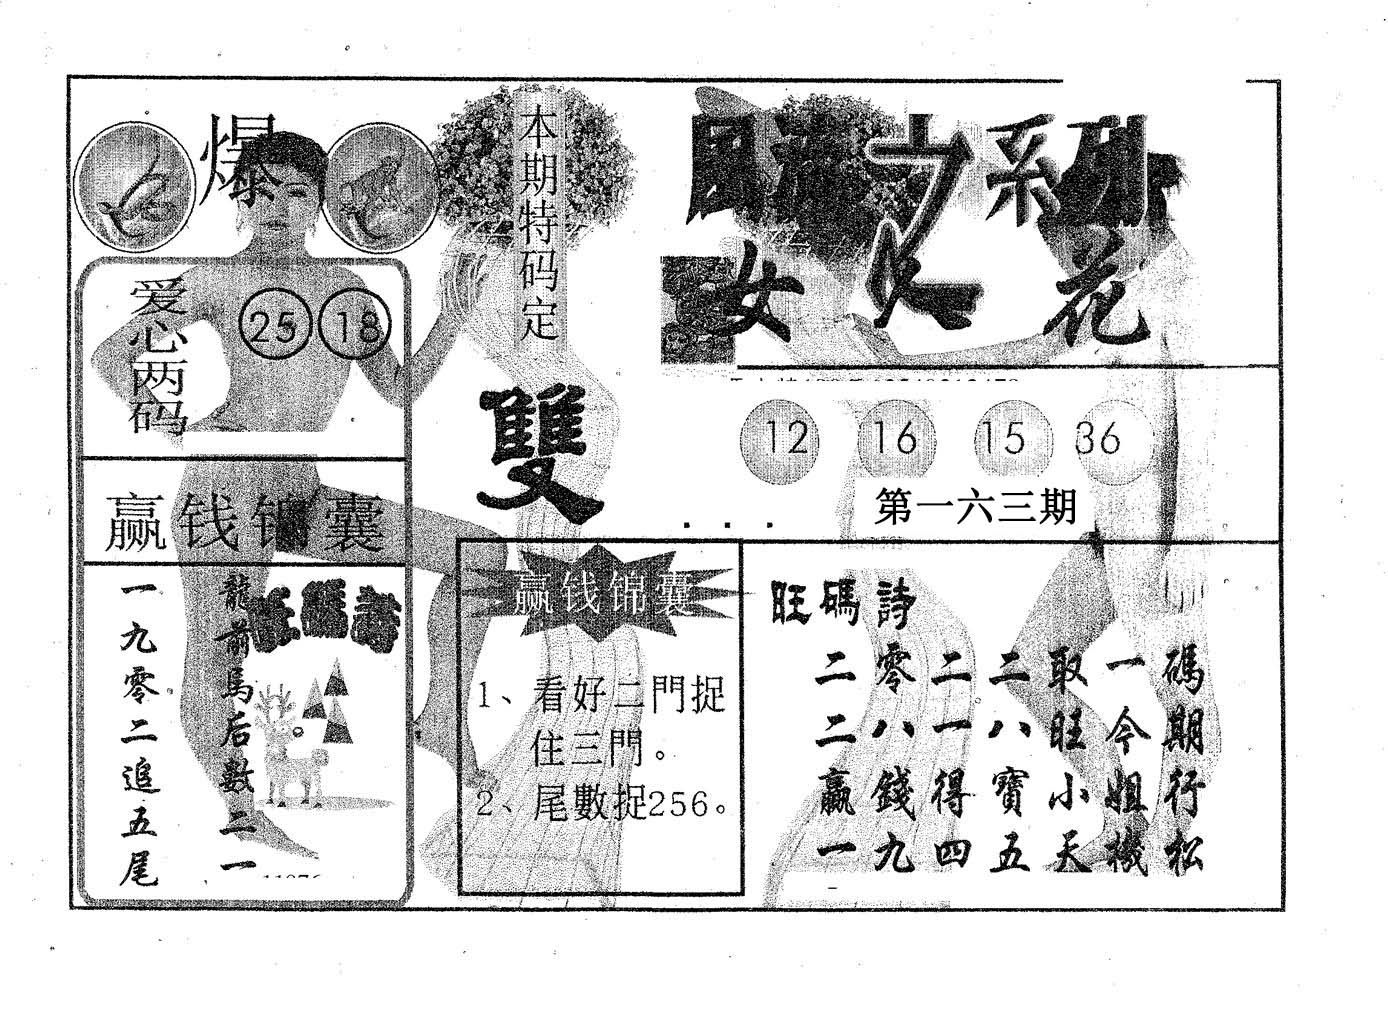 爆
爱心两码
25 18
赢钱锦囊
龍前馬后數二一
一九零二追五尾
旺碼詩
本期特码定
雙
風流女人花系列
12 16 15 36
第一六三期
赢钱锦囊
1、看好二門捉
住三門。
2、尾數捉256。
旺碼詩
二零二二取一碼
二八一八旺今期
贏錢得寶小姐行
一九四五天機松